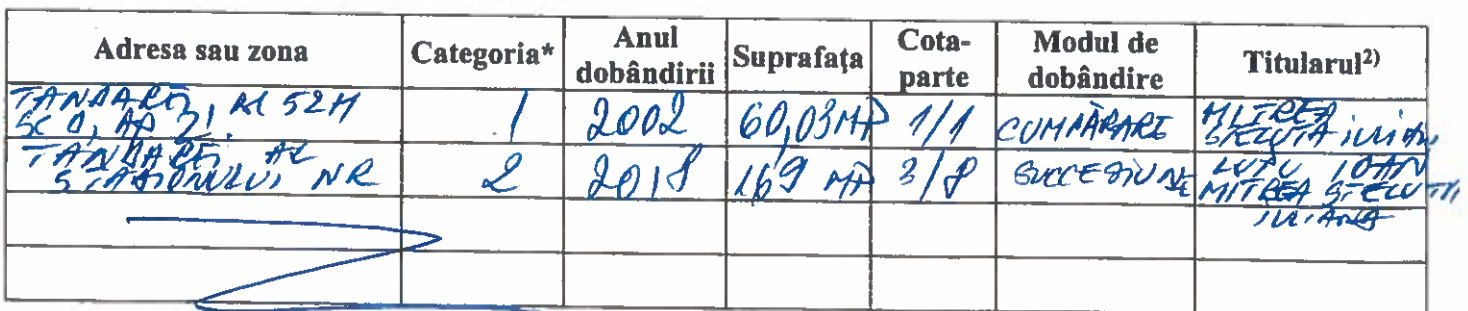 Adresa sau zona Categoria* Anul dobândirii Suprafața Cota-parte Modul de dobândire Titularul²⁾
ȚANDAREI, 52M
SC AP 2, 1 2002 60,03MP 1/1 CUMPĂRARE MITREA STELUTA
ȚANDAREI,
STADIONULUI NR 2 2018 169 MP 3/8 SUCCESIUNE IOAN
MITREA STELUTA